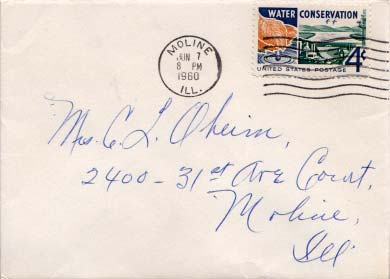 MOLINE
JUN 7
8 PM
1960
ILL.
WATER CONSERVATION
4¢
UNITED STATES POSTAGE
Mrs. C. L. Oheim,
2400-31st Ave Court,
Moline,
Ill